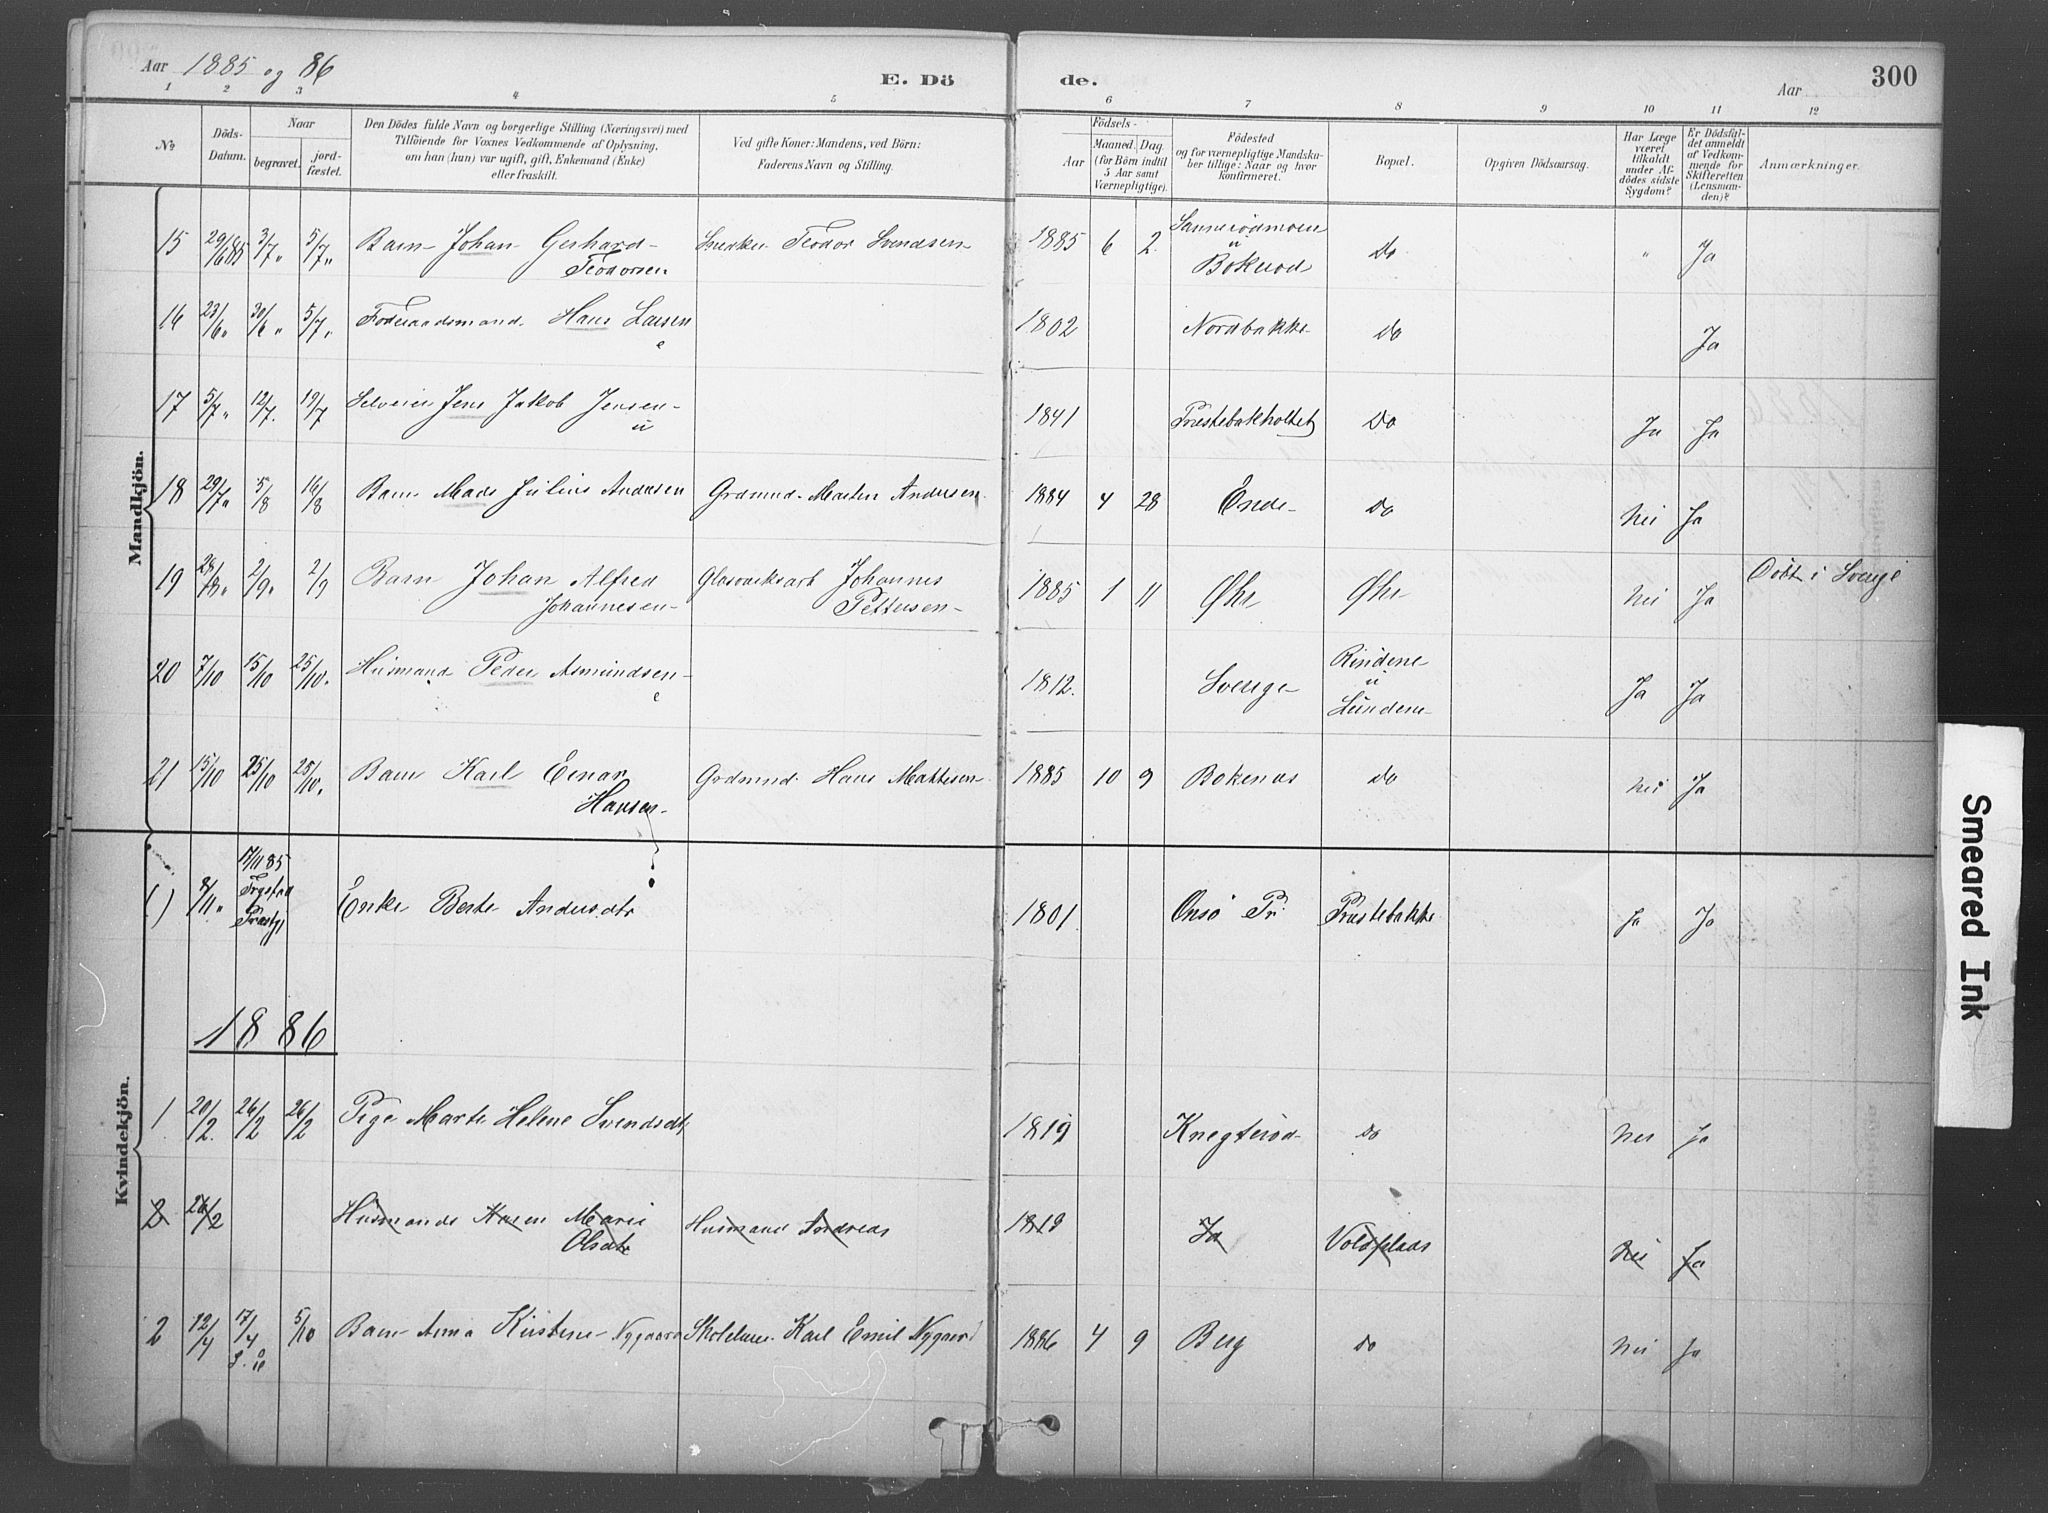 Aar 1885 og 86
E. Dö de.
Aar
300
1 2 3 4 5 6 7 8 9 10 11 12
№
Döds-Datum.
Naar
begravet.
jord-fæstet.
Den Dödes fulde Navn og borgerlige Stilling (Næringsvei) med
Tilföiende for Voxnes Vedkommende af Oplysning,
om han (hun) var ugift, gift, Enkemand (Enke)
eller fraskilt.
Ved gifte Koner: Mandens, ved Börn:
Faderens Navn og Stilling.
Födsels-
Aar
Maaned. Dag.
(for Börn indtil
5 Aar samt
Værnepligtige).
Födested
og for værnepligtige Mandska-
ber tillige: Naar og hvor
konfirmeret.
Bopæl.
Opgiven Dödsaarsag.
Har Læge
været
tilkaldt
under Af-
dödes sidste
Sygdom?
Er Dödsfal-
det anmeldt
af Vedkom-
mende for
Skifteretten
(Lensman-
den)?
Anmærkninger.
Mandkjön.
15 29/6 85 3/7 " 5/7 " Barn Johan Gerhard Snedker Teodor Svendsen 1885 6 2. Do " Ja
Teodorsen
16 23/6 " 30/6 " 5/7 " Föderaadsmand Hans Larsen 1802 Nordbakke Do Ja
e
17 5/7 " 12/7. 19/7 Selveier Jens Jakob Jensen 1841 Præstebakholtet Do Ja Ja
u
18 29/7 " 5/8 16/8 Barn Mads Julius Andersen Grdmnd. Martin Andersen 1884 4 28 Ende Do Nei Ja
19 28/8 " 2/9 " 2/9 Barn Johan Alfred Glasværksarb Johannes 1885 1 11 Øhr Øhr Nei Ja Död i Sverige
Johannesen Pettersen
20 7/10 15/10 25/10. Husmand Peder Asmundsen 1812. Sverige Rindene Ja Ja
e u Lundene
21 15/10 25/10 25/10. Barn Karl Einar Grdmnd. Hans Mattisen 1885 10 9 Bokenes Do Nei Ja
Hansen
Kvindekjön.
8/11 " 17/11 85 Enke Berte Andersdtr 1801 Onsö Pr. Præstebakke Ja Ja
Trøgstad
Præstgj
1886
1 20/2. 26/2 26/2 Pige Marte Helene Svendsdtr 1819 Knegteröd Do Nei Ja
2 26/2 Husmands Karen Marie Husmand Andreas 1819 Id Voldsplads Nei Ja
Olsdtr
2 12/4 17/4 5/10 Barn Anna Kirstine Nygaard Skolelærer Karl Emil Nygaard 1886 4 9 Berg Do Nei Ja
Smeared Ink